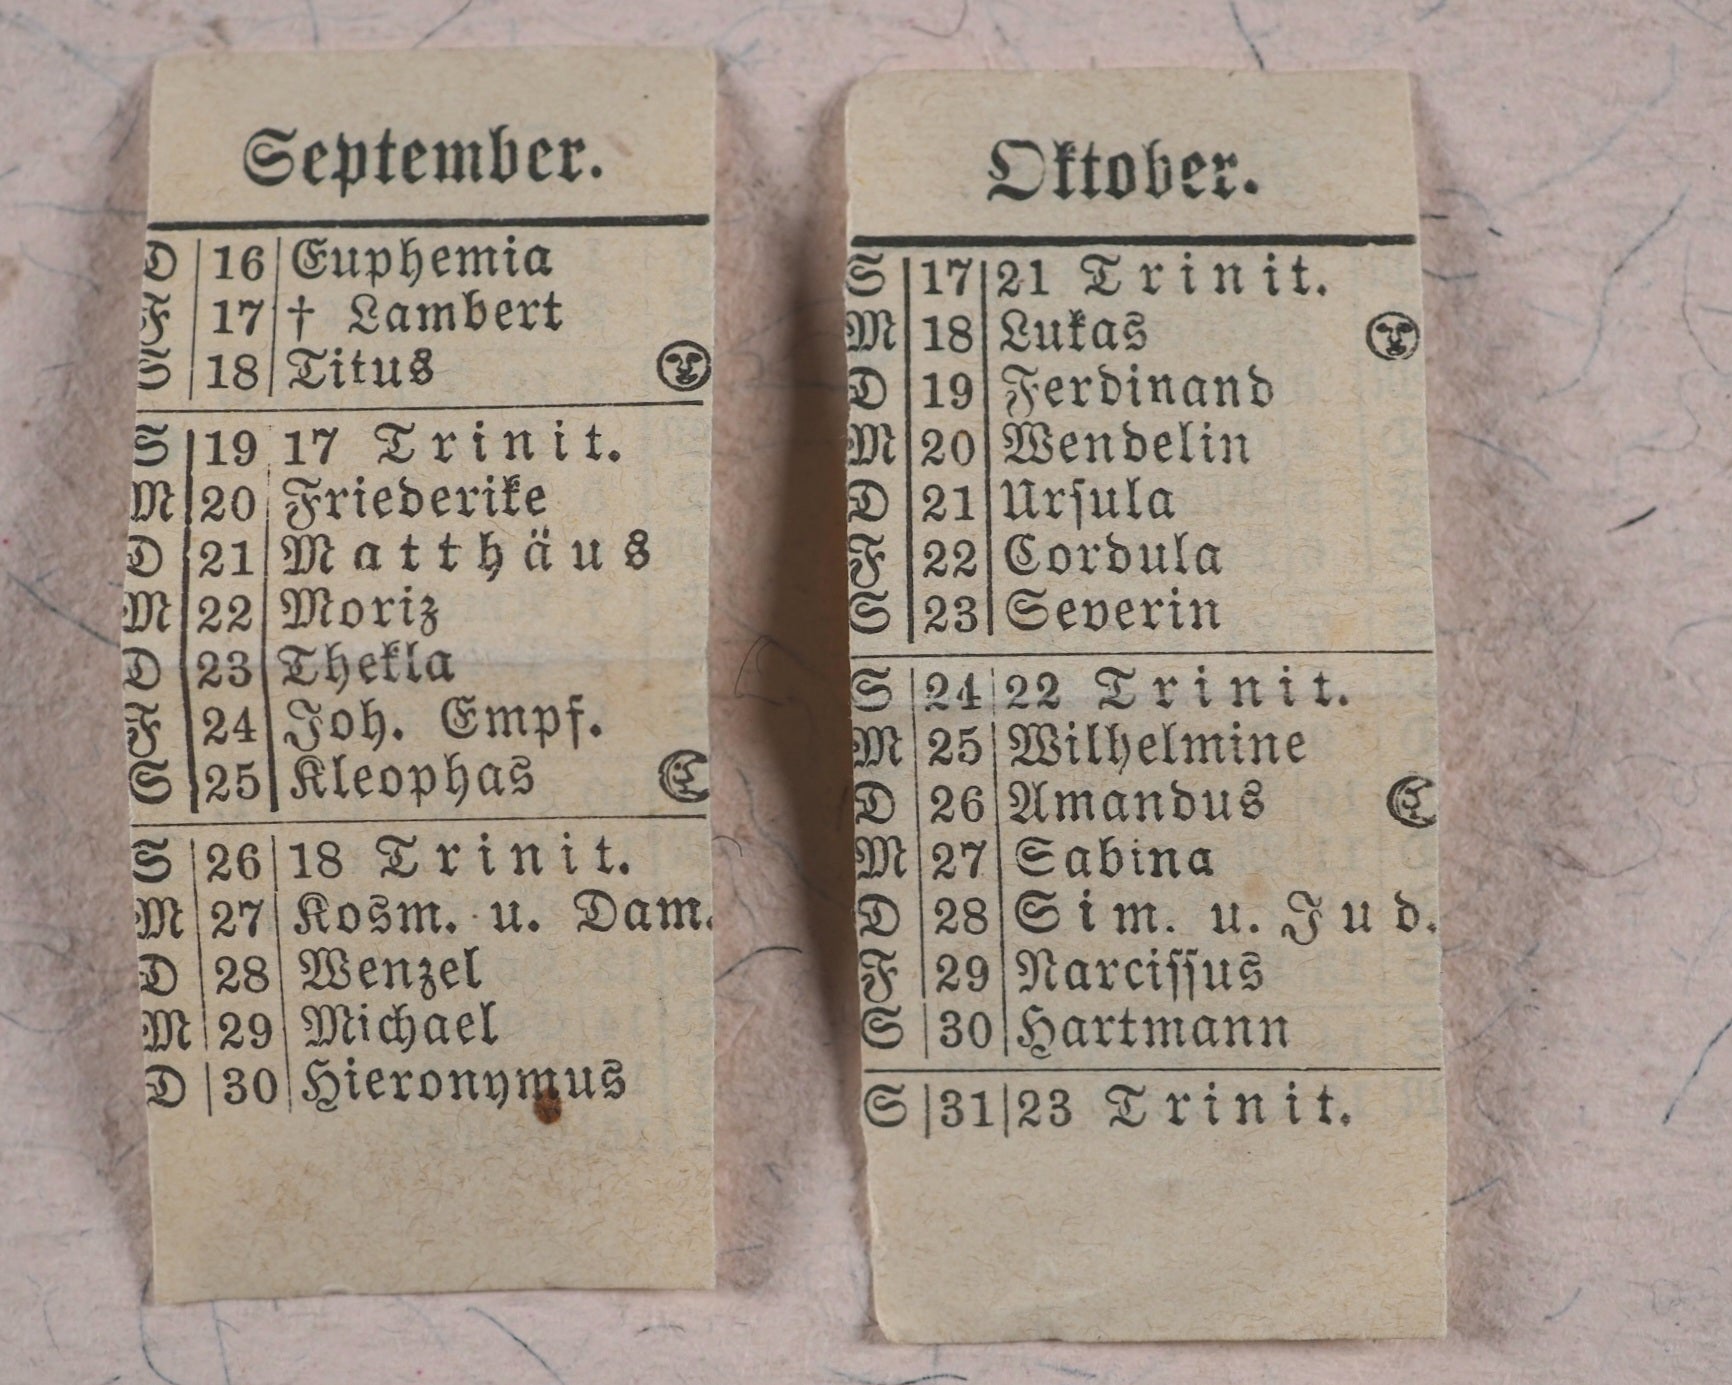 September.
D 16 Euphemia
F 17 † Lambert
S 18 Titus
S 19 17 Trinit.
M 20 Friederike
D 21 Matthäus
M 22 Moriz
D 23 Thekla
F 24 Joh. Empf.
S 25 Kleophas
S 26 18 Trinit.
M 27 Kosm. u. Dam.
D 28 Wenzel
M 29 Michael
D 30 Hieronymus
Oktober.
S 17 21 Trinit.
M 18 Lukas
D 19 Ferdinand
M 20 Wendelin
D 21 Urſula
F 22 Cordula
S 23 Severin
S 24 22 Trinit.
M 25 Wilhelmine
D 26 Amandus
M 27 Sabina
D 28 Sim. u. Jud.
F 29 Narciſſus
S 30 Hartmann
S 31 23 Trinit.